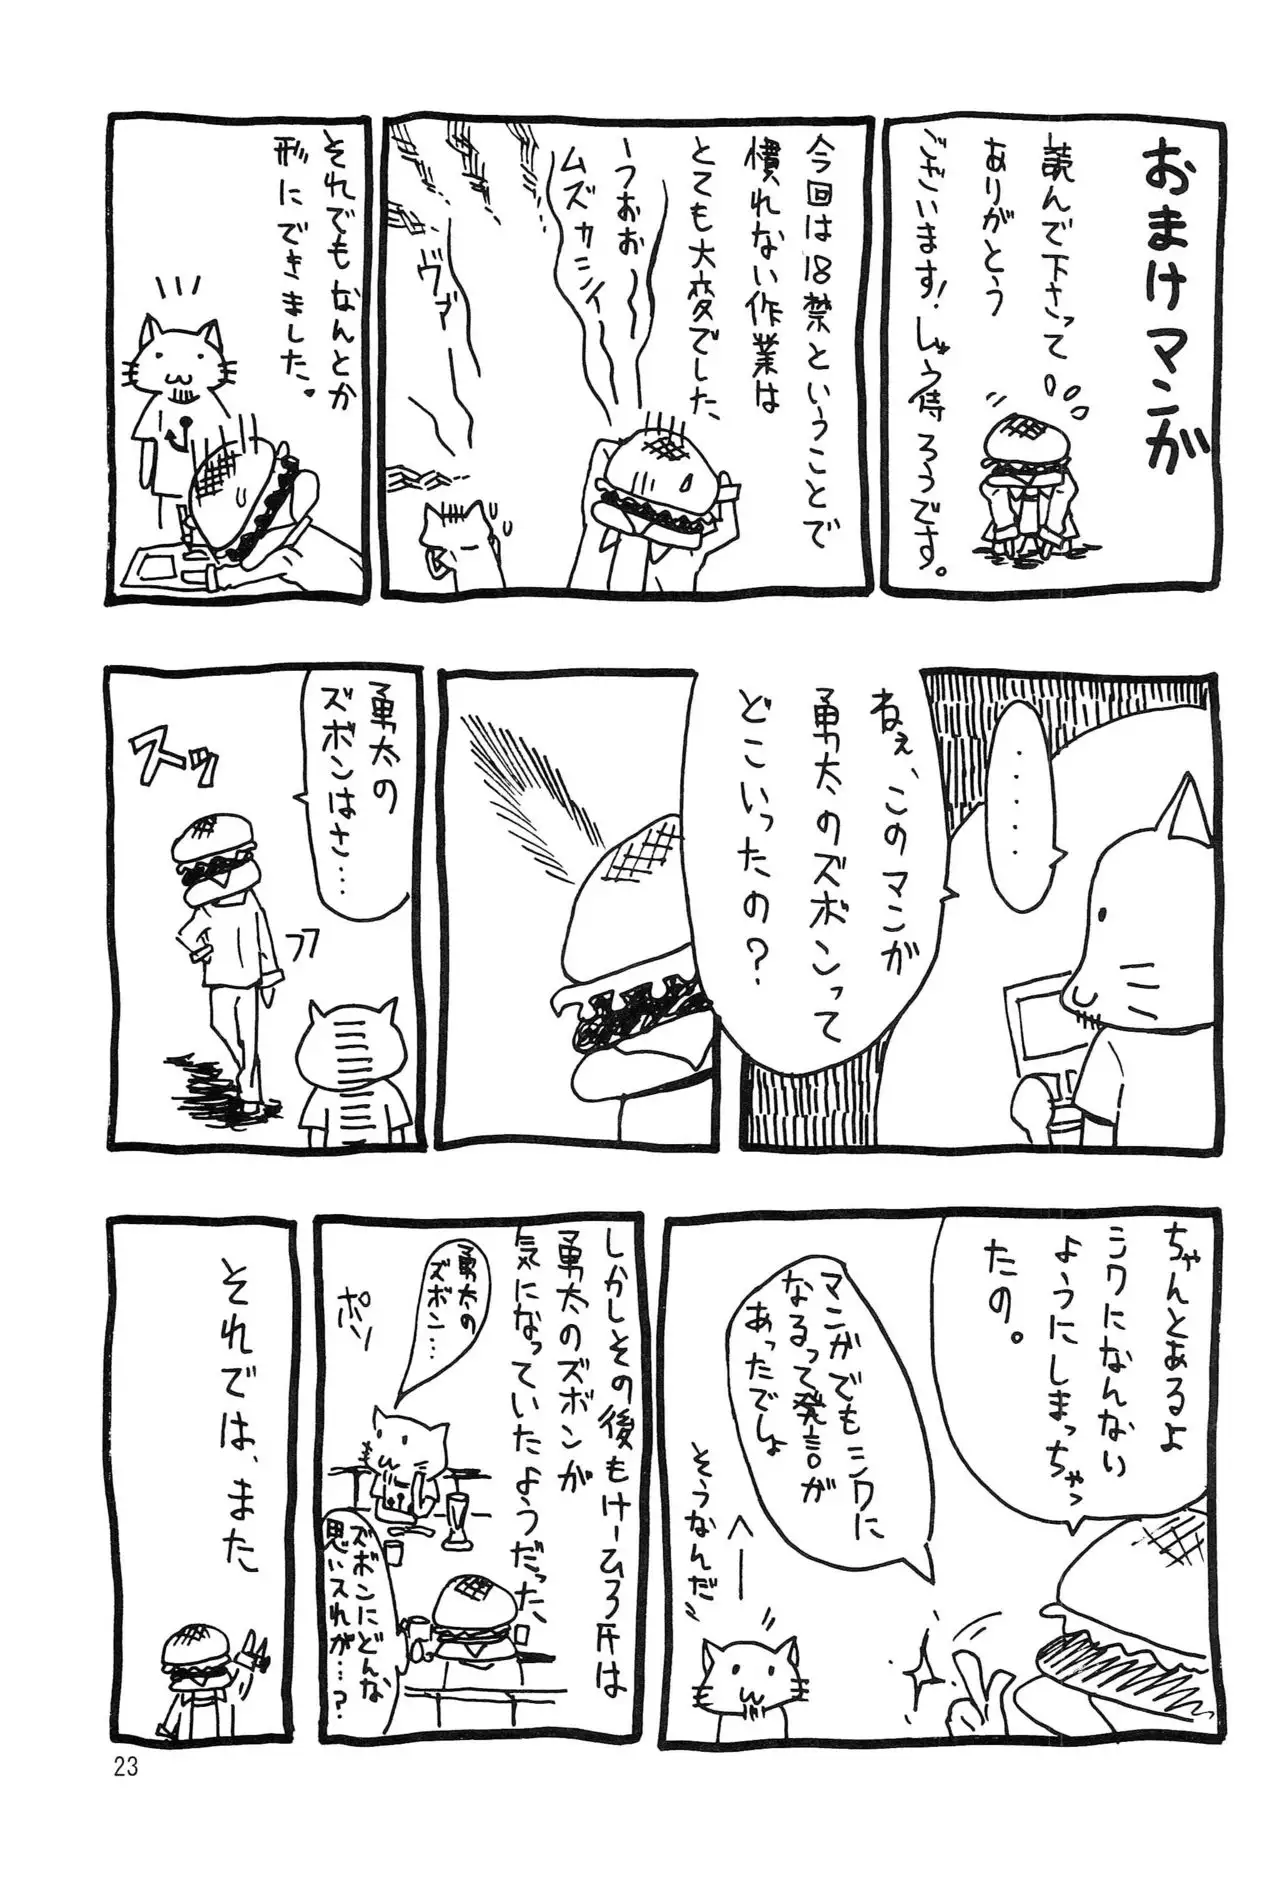 おまけマンガ
読んで下さって
ありがとう
ございます!しゅう侍ろうです。
今回は18禁ということで
慣れない作業は
とても大変でした、
うおおー
ムズカシイー
ヴァー
それでもなんとか
形にできました。
・・・・・
ねぇ、このマンガ
勇太のズボンって
どこいったの?
勇太の
ズボンはさ…
スッ
フフ
ちゃんとあるよ
シワになんない
ようにしまっちゃっ
たの。
マンガでもシワに
なるって発言が
あったでしょ
へー
そうなんだ
しかしその後もけームろ氏は
勇太のズボンが
気になっていたようだった、
勇太の
ズボン…
ポソ
ズボンにどんな
思い入れが…?
それでは、また
23